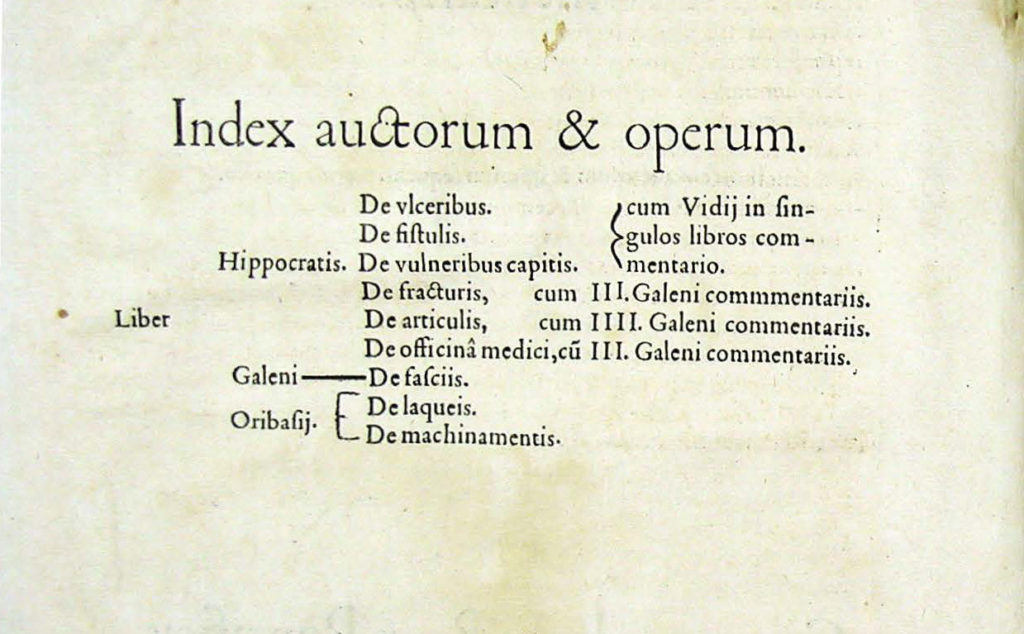 Index auctorum & operum.
De vlceribus. cum Vidij in ſin-
De fiſtulis. gulos libros com-
Hippocratis. De vulneribus capitis. mentario.
De fracturis, cum III. Galeni commmentariis.
Liber De articulis, cum IIII. Galeni commentariis.
De officinâ medici, cū III. Galeni commentariis.
Galeni De faſciis.
Oribaſij. De laqueis.
De machinamentis.